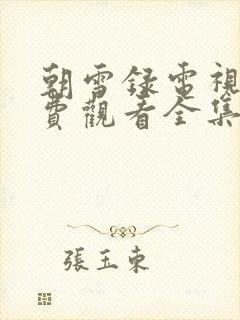 朝雪録電視
費觀看全集
張玉東